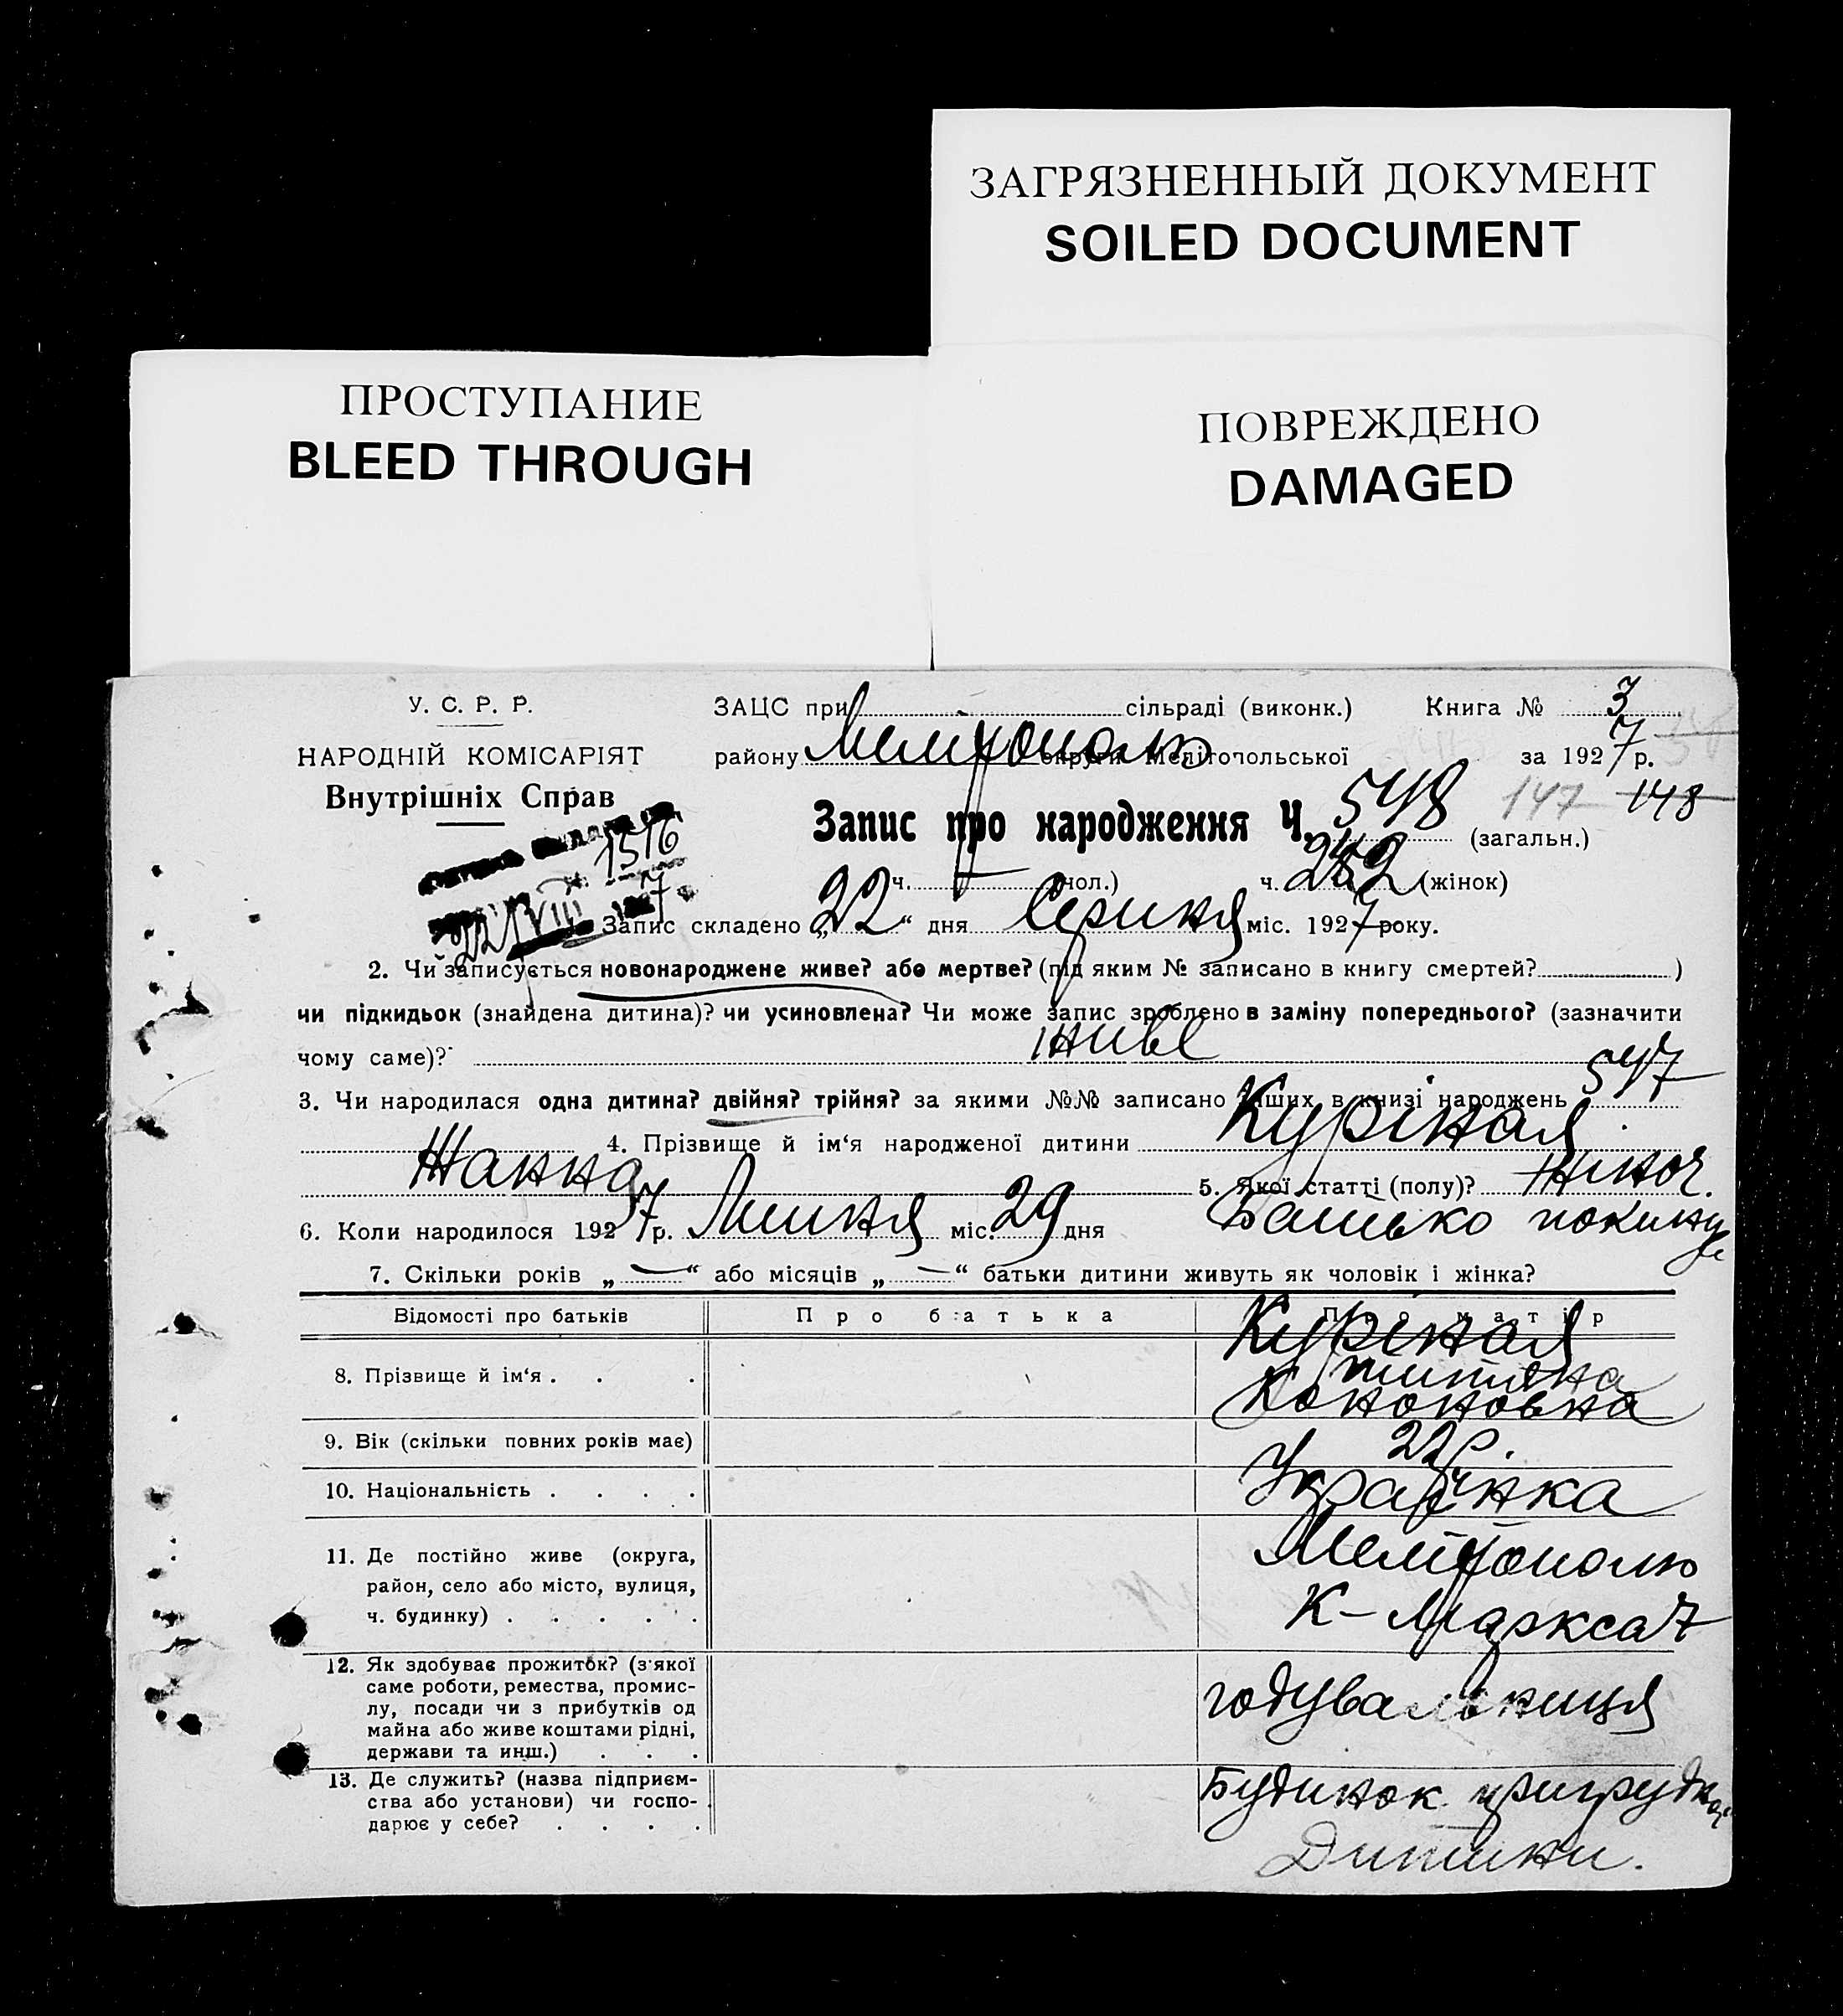 ЗАГРЯЗНЕННЫЙ ДОКУМЕНТ
SOILED DOCUMENT
ПРОСТУПАНИЕ
BLEED THROUGH
ПОВРЕЖДЕНО
DAMAGED
У. С. Р. Р.
НАРОДНІЙ КОМІСАРІЯТ
Внутрішніх Справ
ЗАЦС при сільраді (виконк.) Книга № 3
району Мелітополь округи Мелітопольської за 1927 р.
147 148
Запис про народження Ч. 548 (загальн.)
1516
ч. (чол.) ч. (жінок)
22/VIII 7
Запис складено „22“ дня Серпня міс. 1927 року.
2. Чи записується новонароджене живе? або мертве? (під яким № записано в книгу смертей? )
чи підкидьок (знайдена дитина)? чи усиновлена? Чи може запис зроблено в заміну попереднього? (зазначити
чому саме)? живе
3. Чи народилася одна дитина? двійня? трійня? за якими №№ записано инших в книзі народжень 547
4. Прізвище й ім‘я народженої дитини Куріная
Жанна 5. Якої статті (полу)? жіноч.
6. Коли народилося 1927 р. Липня міс. 29 дня Батько покинув
7. Скільки років „—“ або місяців „—“ батьки дитини живуть як чоловік і жінка?
Відомості про батьків Про батька Про матір
8. Прізвище й ім‘я . . . Куріная
Кононовна
9. Вік (скільки повних років має) 22 р.
10. Національність . . . . Українка
11. Де постійно живе (округа, Мелітополь
район, село або місто, вулиця,
ч. будинку) . . . . . К-Маркса 7
12. Як здобуває прожиток? (з'якої
саме роботи, ремества, промис-
лу, посади чи з прибутків од годувальниця
майна або живе коштами рідні,
держави та инш.) . . .
13. Де служить? (назва підприєм- Будинок
ства або установи) чи госпо-
дарює у себе? . . . . Дитини.